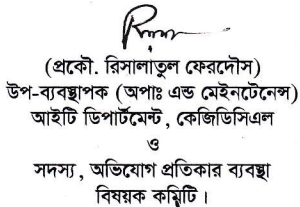 (প্রকৌ. রিসালাতুল ফেরদৌস)
উপ-ব্যবস্থাপক (অপাঃ এন্ড মেইনটেনেন্স)
আইটি ডিপার্টমেন্ট, কেজিডিসিএল
ও
সদস্য, অভিযোগ প্রতিকার ব্যবস্থা
বিষয়ক কমিটি।